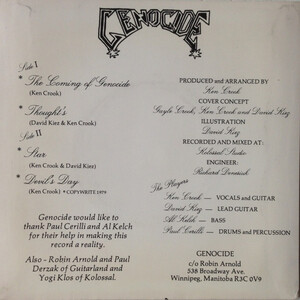 GENOCIDE
Side I
The Coming of Genocide
(Ken Crook)
Thought's
(David Kirz & Ken Crook)
Side II
Star
(Ken Crook & David Kirz)
Devil's Day
(Ken Crook) • COPYWRITE 1979
PRODUCED and ARRANGED BY
Ken Crook
COVER CONCEPT
Gayle Crook, Ken Crook and David Kirz
ILLUSTRATION
David Kirz
RECORDED AND MIXED AT:
Kolossal Studio
ENGINEER:
Richard
The Players
Ken Crook — VOCALS and GUITAR
David Kirz — LEAD GUITAR
Al Kelch — BASS
Paul Cerilli — DRUMS and PERCUSSION
Genocide would like to
thank Paul Cerilli and Al Kelch
for their help in making this
record a reality.
Also - Robin Arnold and Paul
Derzak of Guitarland and
Yogi Klos of Kolossal.
GENOCIDE
c/o Robin Arnold
538 Broadway Ave.
Winnipeg, Manitoba R3C 0V9